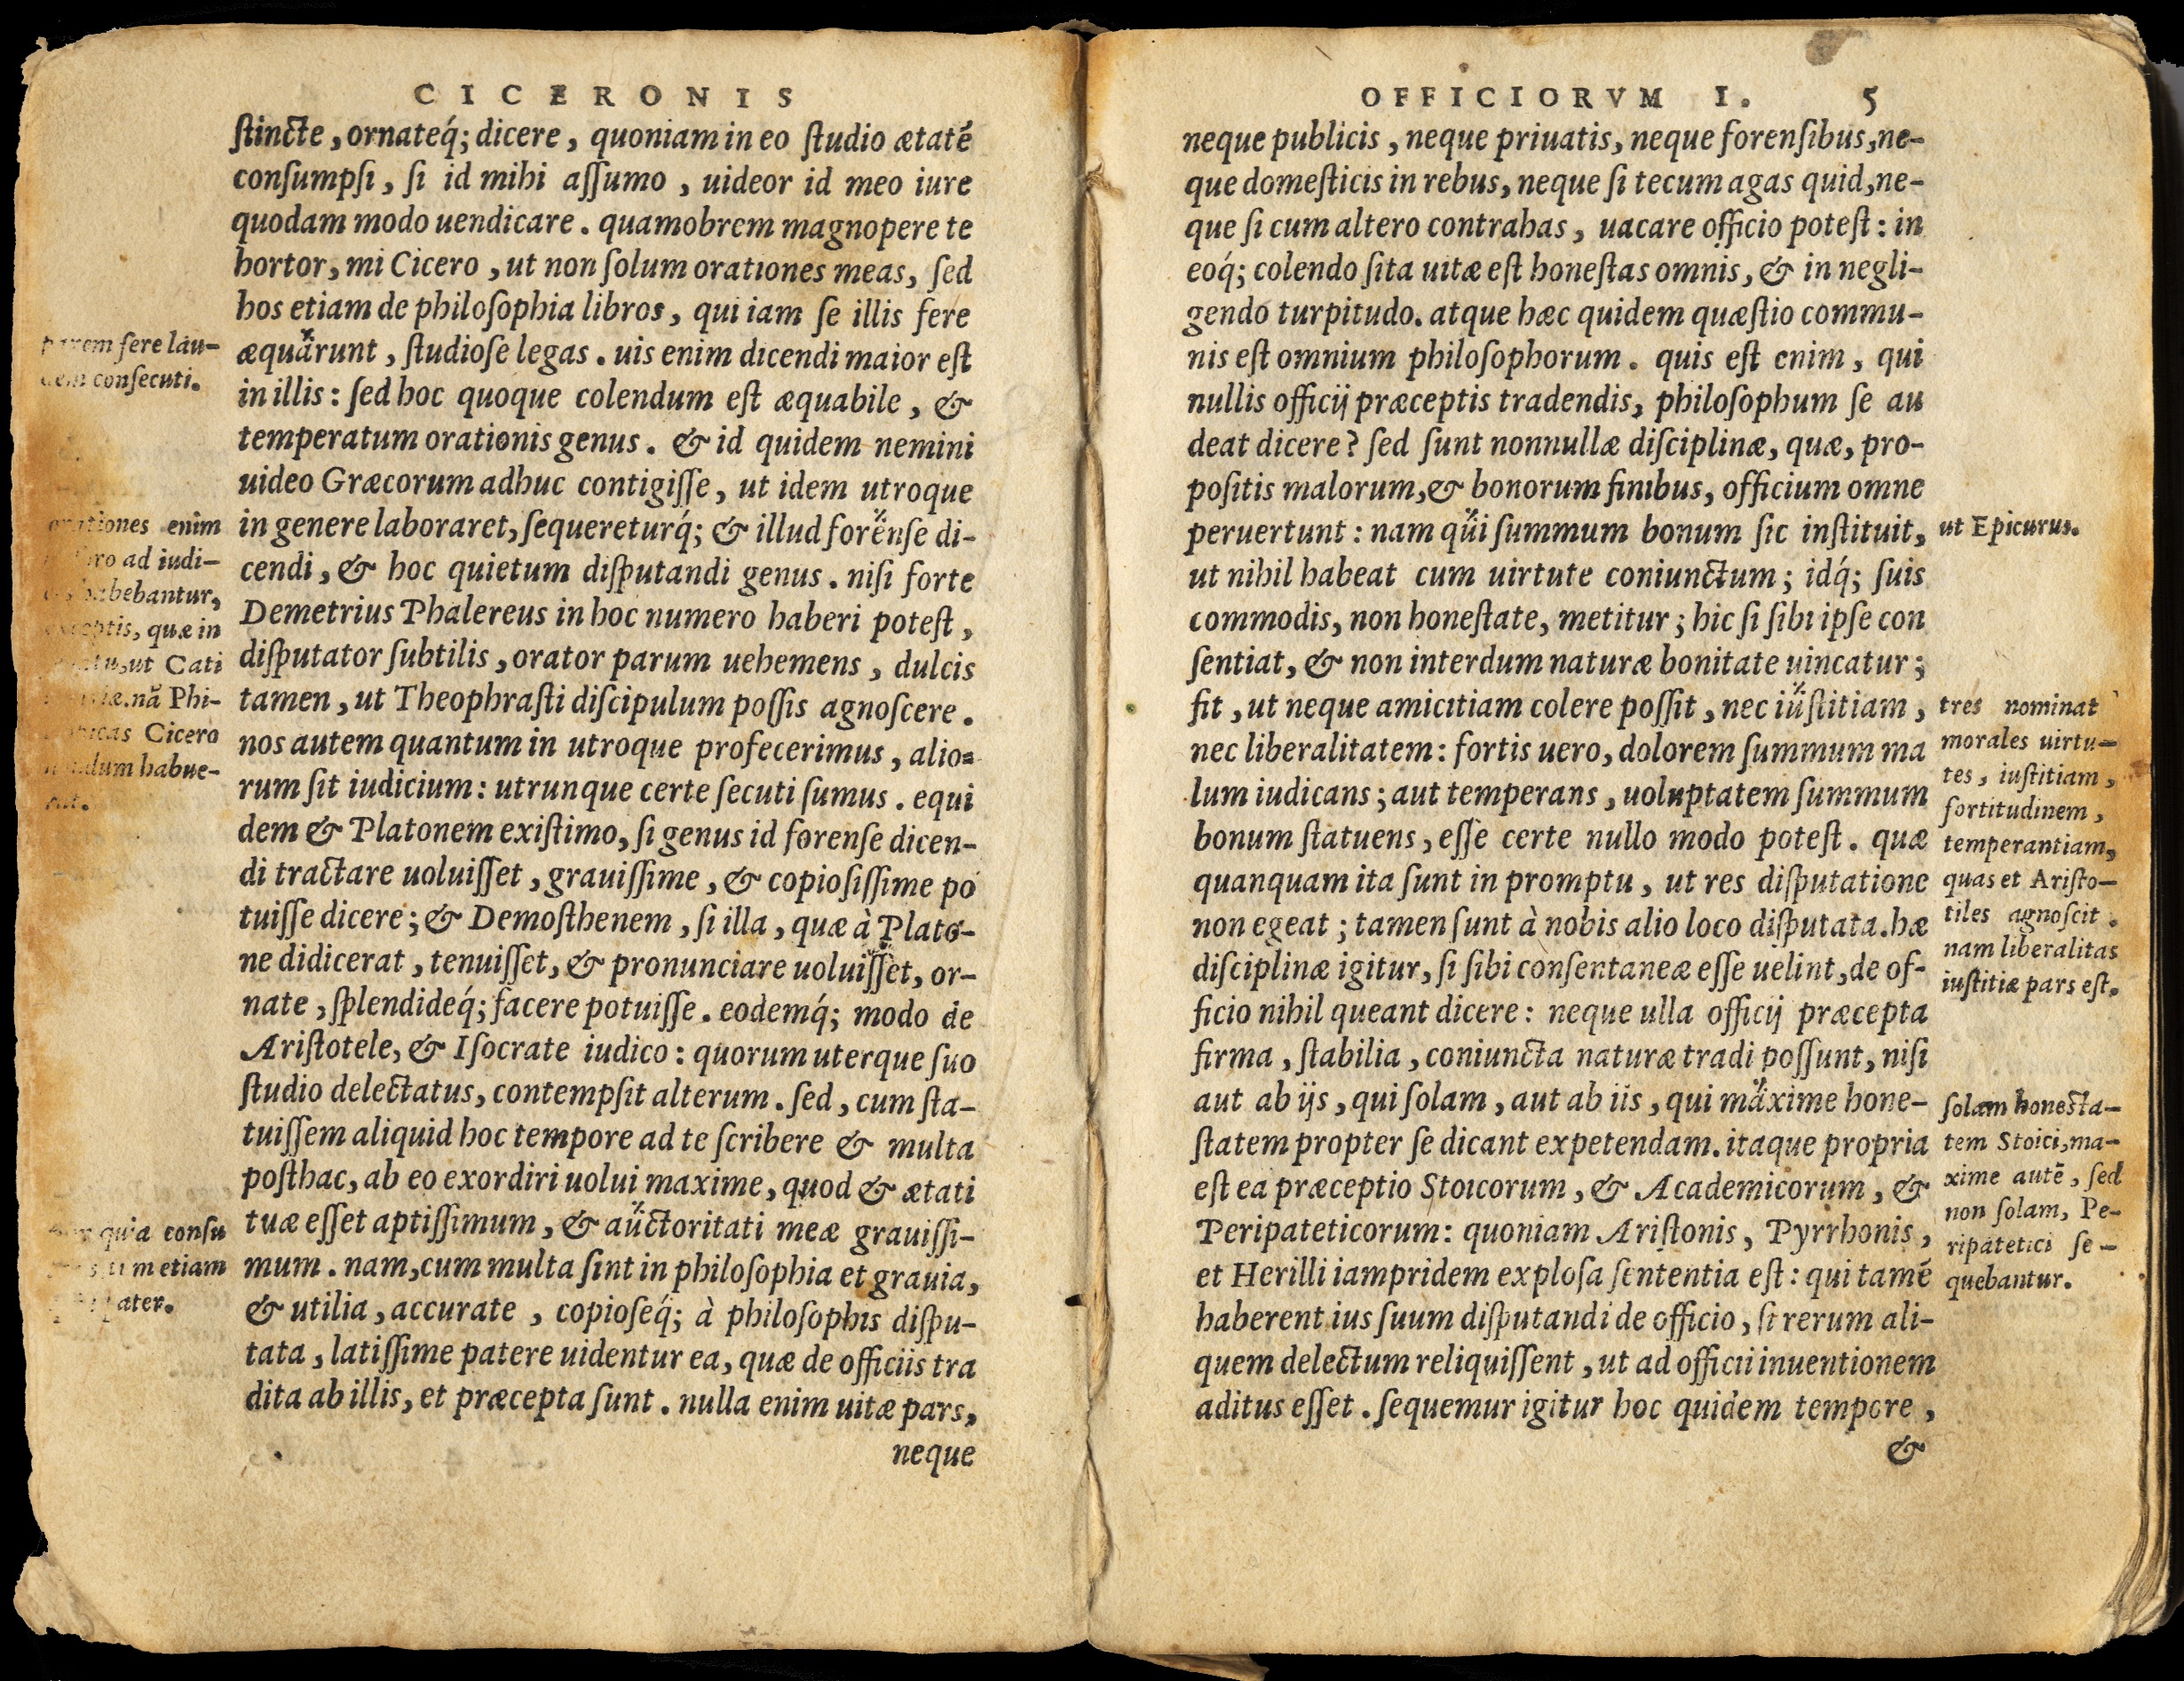 CICERONIS
ſtincte, ornateq́; dicere, quoniam in eo ſtudio ætatē
conſumpſi, ſi id mihi aſſumo, uideor id meo iure
quodam modo uendicare. quamobrem magnopere te
hortor, mi Cicero, ut non ſolum orationes meas, ſed
hos etiam de philoſophia libros, qui iam ſe illis fere
æquarunt, ſtudioſe legas. uis enim dicendi maior eſt
in illis: ſed hoc quoque colendum eſt æquabile, &
temperatum orationis genus. & id quidem nemini
uideo Græcorum adhuc contigiſſe, ut idem utroque
in genere laboraret, ſequereturq́; & illud forenſe di-
cendi, & hoc quietum diſputandi genus. niſi forte
Demetrius Phalereus in hoc numero haberi poteſt,
diſputator ſubtilis, orator parum uehemens, dulcis
tamen, ut Theophraſti diſcipulum poſſis agnoſcere.
nos autem quantum in utroque profecerimus, alio-
rum ſit iudicium: utrunque certe ſecuti ſumus. equi
dem & Platonem exiſtimo, ſi genus id forenſe dicen-
di tractare uoluiſſet, grauiſſime, & copioſiſſime po
tuiſſe dicere; & Demoſthenem, ſi illa, quæ à Plato-
ne didicerat, tenuiſſet, & pronunciare uoluiſſet, or-
nate, ſplendideq́; facere potuiſſe. eodemq́; modo de
Ariſtotele, & Iſocrate iudico: quorum uterque ſuo
ſtudio delectatus, contempſit alterum. ſed, cum ſta-
tuiſſem aliquid hoc tempore ad te ſcribere & multa
poſthac, ab eo exordiri uolui maxime, quod & ætati
tuæ eſſet aptiſſimum, & auctoritati meæ grauiſſi-
mum. nam, cum multa ſint in philoſophia et grauia,
& utilia, accurate, copioſeq́; à philoſophis diſpu-
tata, latiſſime patere uidentur ea, quæ de officiis tra
dita ab illis, et præcepta ſunt. nulla enim uitæ pars,
neque
parem fere lau-
dem conſecuti.
orationes enim
ad iudi-
habebantur,
exceptis, quæ in
ut Cati
nā Phi-
Cicero
habue-
quia conſu
etiam
pater.
OFFICIORVM I. 5
neque publicis, neque priuatis, neque forenſibus, ne-
que domeſticis in rebus, neque ſi tecum agas quid, ne-
que ſi cum altero contrahas, uacare officio poteſt: in
eoq́; colendo ſita uitæ eſt honeſtas omnis, & in negli-
gendo turpitudo. atque hæc quidem quæſtio commu-
nis eſt omnium philoſophorum. quis eſt enim, qui
nullis officij præceptis tradendis, philoſophum ſe au
deat dicere? ſed ſunt nonnullæ diſciplinæ, quæ, pro-
poſitis malorum, & bonorum finibus, officium omne
peruertunt: nam qui ſummum bonum ſic inſtituit,
ut nihil habeat cum uirtute coniunctum; idq́; ſuis
commodis, non honeſtate, metitur; hic ſi ſibi ipſe con
ſentiat, & non interdum naturæ bonitate uincatur;
fit, ut neque amicitiam colere poſſit, nec iuſtitiam,
nec liberalitatem: fortis uero, dolorem ſummum ma
lum iudicans; aut temperans, uoluptatem ſummum
bonum ſtatuens, eſſe certe nullo modo poteſt. quæ
quanquam ita ſunt in promptu, ut res diſputatione
non egeat; tamen ſunt à nobis alio loco diſputata. hæ
diſciplinæ igitur, ſi ſibi conſentaneæ eſſe uelint, de of-
ficio nihil queant dicere: neque ulla officij præcepta
firma, ſtabilia, coniuncta naturæ tradi poſſunt, niſi
aut ab ijs, qui ſolam, aut ab iis, qui maxime hone-
ſtatem propter ſe dicant expetendam. itaque propria
eſt ea præceptio Stoicorum, & Academicorum, &
Peripateticorum: quoniam Ariſtonis, Pyrrhonis,
et Herilli iampridem exploſa ſententia eſt: qui tamē
haberent ius ſuum diſputandi de officio, ſi rerum ali-
quem delectum reliquiſſent, ut ad officii inuentionem
aditus eſſet. ſequemur igitur hoc quidem tempore,
&
ut Epicurus.
tres nominat
morales uirtu-
tes, iuſtitiam,
fortitudinem,
temperantiam,
quas et Ariſto-
tiles agnoſcit.
nam liberalitas
iuſtitiæ pars eſt.
ſolam honeſta-
tem Stoici, ma-
xime autē, ſed
non ſolam, Pe-
ripatetici ſe-
quebantur.